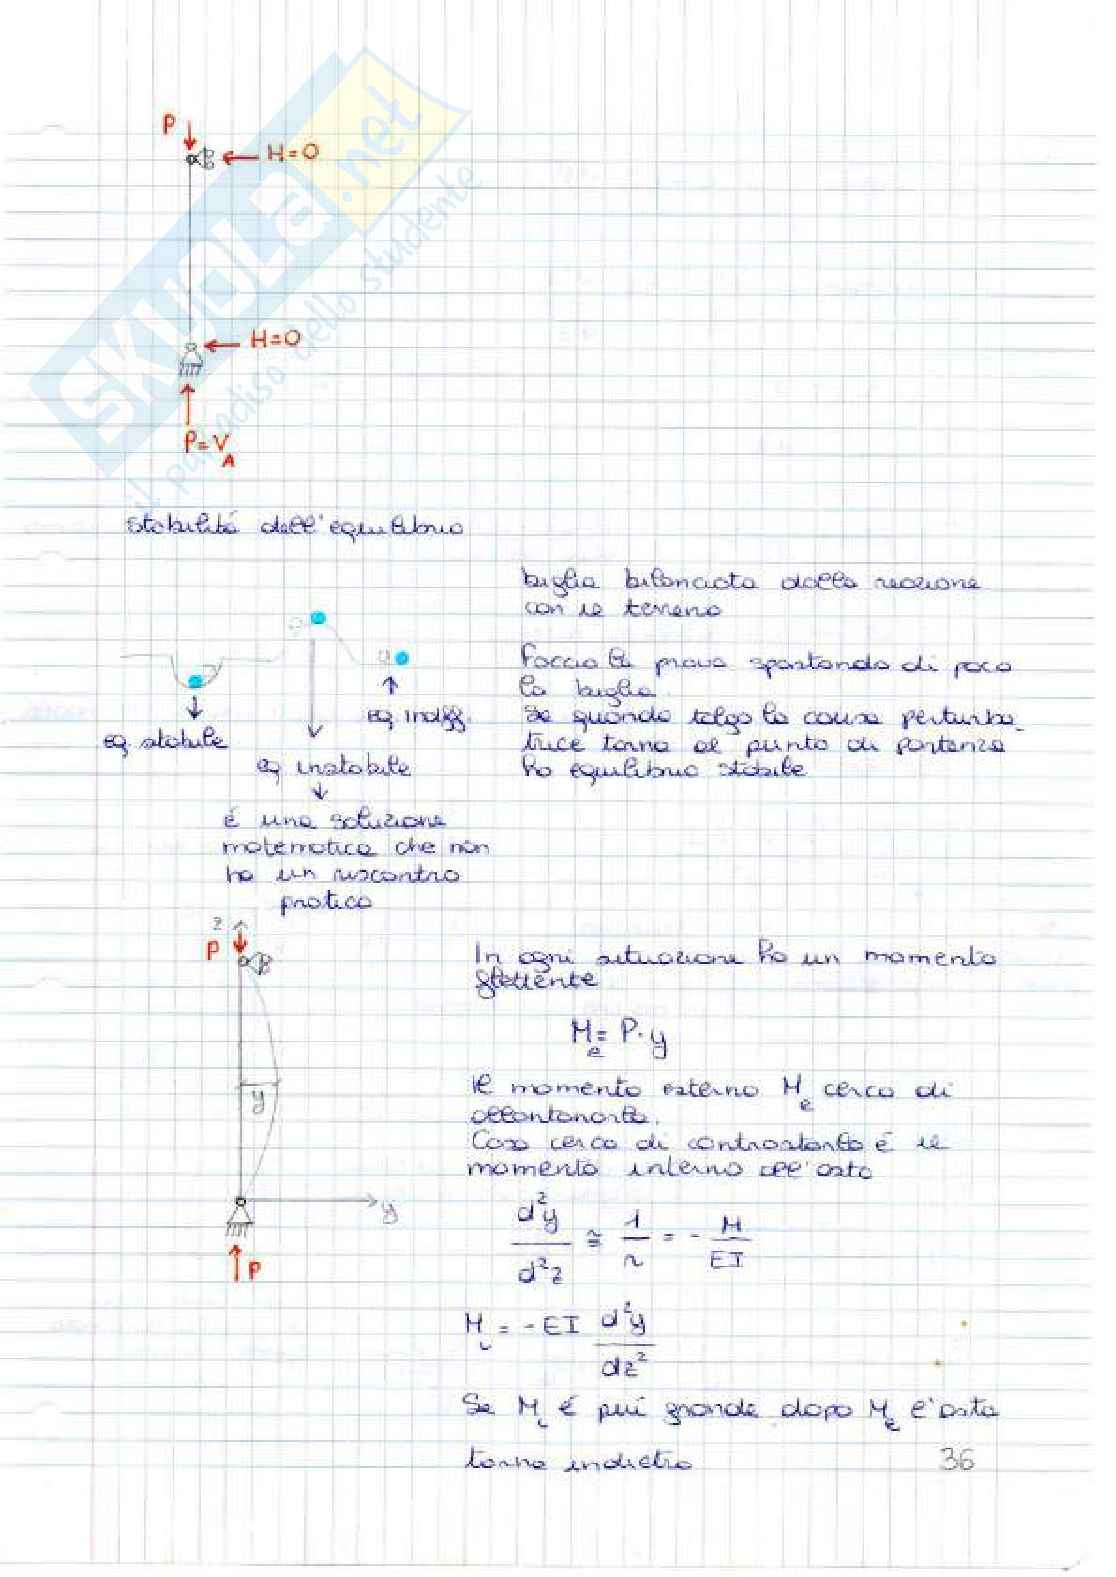 P
H=0
H=0
P=V
A
SKUOLA.net
il paradiso dello studente
stabilitá dell'equilibrio
biglia bilanciata dalla reazione
con il terreno
Faccio la prova spostando di poco
la biglia.
Se quando tolgo la causa perturba_
trice torna al punto di partenza
ho equilibrio stabile
eq stabile
eq indiff.
eq instabile
é una soluzione
matematica che non
ha un riscontro
pratico
z
P
y
y
P
In ogni situazione ho un momento
flettente
Me = P·y
Il momento esterno Me cerca di
allontanarla.
Cosa cerca di contrastarla é il
momento interno all'asta
d²y/d²z ≅ 1/r = - M/EI
Mi = -EI d²y/dz²
Se Mi é piú grande dopo Me l'asta
torna indietro
36